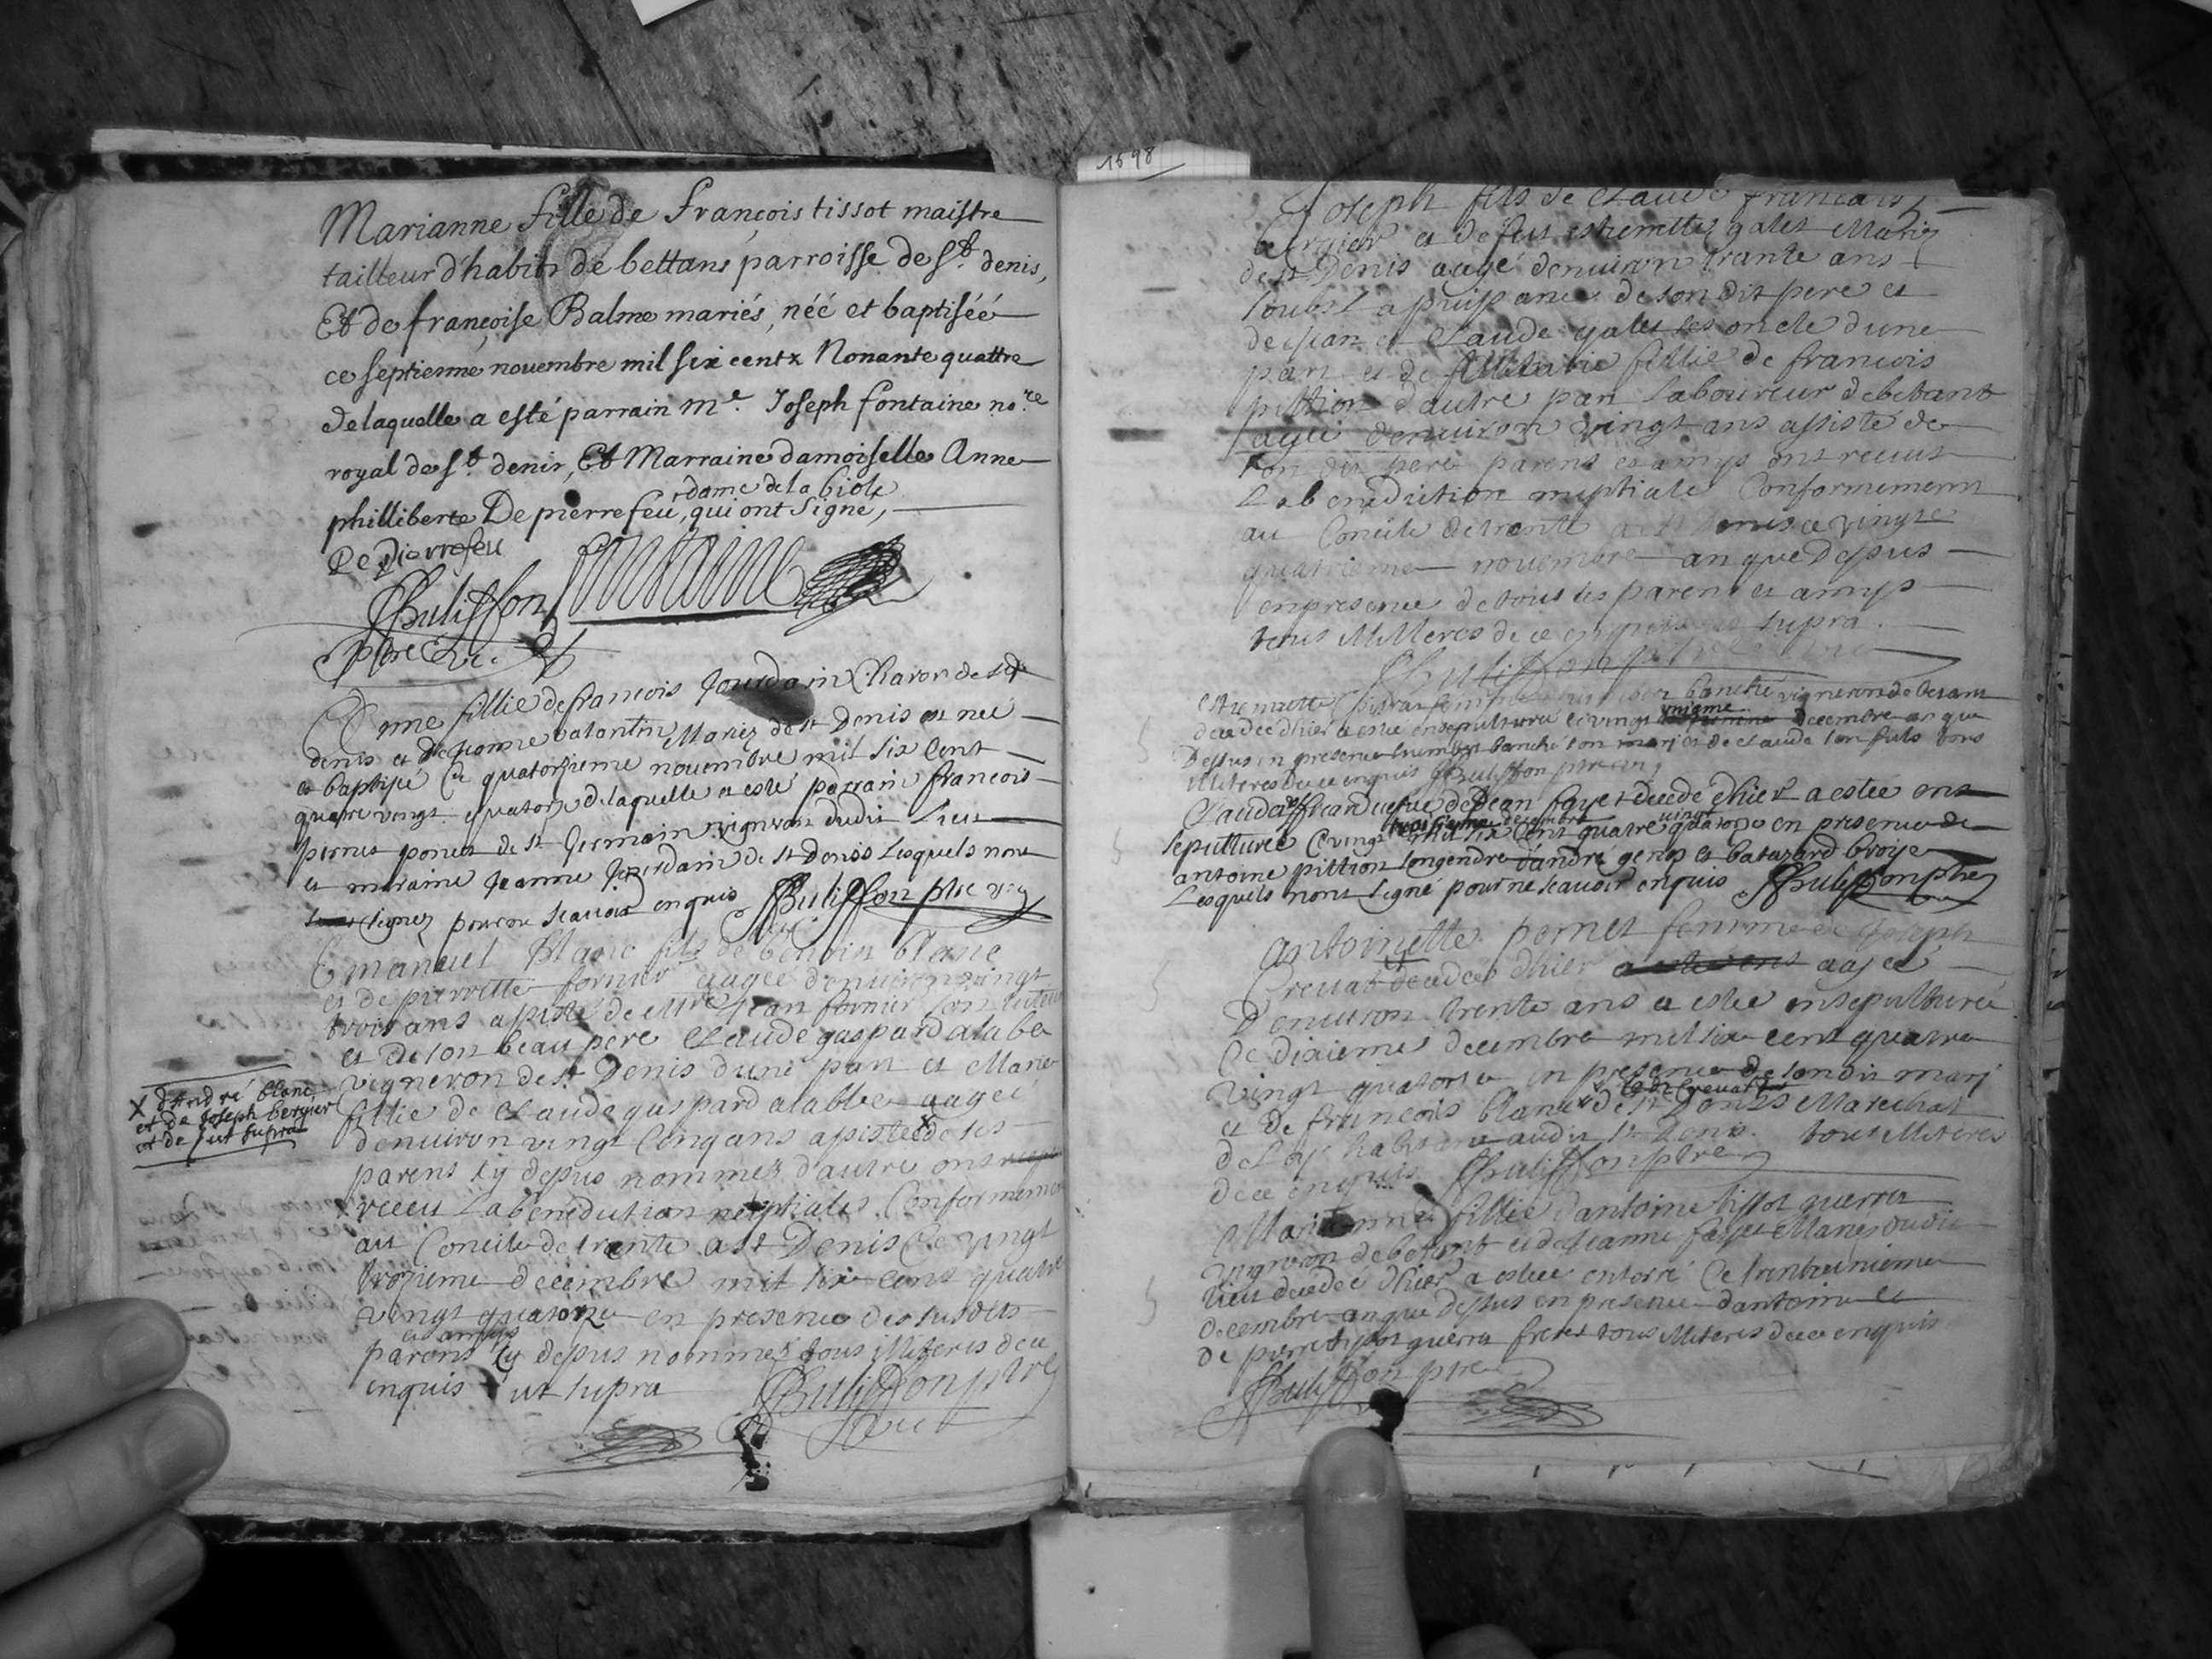 Marianne fille de françois tissot maistre
tailleur d'habits de bettans parroisse de st denis,
Et de françoise Balme mariés, néé et baptiséé
ce septieme novembre mil six centz Nonante quattre
de laquelle a esté parrain me. Joseph fontaine no.re
royal de st denis, Et Marraine damoiselle Anne
dame de la biole
philliberte De pierrefeu, qui ont signé,
De Pierrefeu
fontaine
Anne fillie de francois Jourdain Charon de st
denis et de Jeanne valantin Mariez de st Denis est neé
et baptisé Ce quatorzieme nouembre mil six Cent
quatrevingt quatorze de laquelle a esté parrain francois
de st Germain vigneron dudit Lieu
et maraine Jeanne Jourdain de st Denis Lesquels nont
signez pour ne scauoir enquis
Emanuel Blanc fils de benoit blanc
et de pierrette fornier aagée denuiron vingt
trois ans assisté de Mtre Jean fornier son
et de son beau pere Claude gaspard alabe
vigneron de st Denis d'une part et Marie
fillie de Claude gaspard alabbe aageé
denuiron vingt Cinq ans assistée de ses
X d'André blanc
et de Joseph bergier
et de put supra
parens sy depus nommez d'autre ont
receu La benediction nuptiale Conformement
au Concile de trente a st Denis Ce vingt
troizieme decembre mil six cens quatre
vingt quatorze en presence des susdits
et amys
parens sy depus nommez tous illiteres de ce
enquis ut supra
1698
Joseph fils de Claude francois
bergier et de galet Mariez
de st Denis aagé denuiron trante ans
soubs la puissance de son dit pere et
de Jean et Claude galet ses oncle dune
part et de fillie de francois
pittion d'autre part Laboureur de betant
aagée denuiron vingt ans assisté de
son dit pere parens et amys ont receus
La benediction nuptiale Conformement
au Concile de trente a st Denis ce vingt
quatrieme nouembre an que Depus
en presence de tous les parens et amys
tous illiteres de ce enquis ut supra.
banché vigneron de betant
decedée dhier a estée ensepulturée ce vingt unieme decembre an que
Dessus en presence banché son mari et de claude son fils tous
illiteres de ce enquis
de Jean fayet decedé dhier a estée en
troisieme decembre
sepulturée Ce vingt mil six Cent quatre vingt quatorze en presence de
antoine pittion son gendre d'andré genos et batazard broye
Lesquels nont signé pour ne scauoir enquis
antoinette pernet femme de Joseph
Creuat decedée dhier aagée
Denuiron trente ans a estée ensepulturée
Ce dixieme decembre mil six cent quatre
vingt quatorze en presence de son dit mari
et de francois blanc de st Denis Marechal
habitant audit st Denis tous illiteres
de ce enquis
Marianne fillie d'antoine tissot guerra
vigneron de betant et de Jeanne fayet Mariez dudit
lieu decedeé dhier a estee enterré Ce trente unieme
decembre an que dessus en presence dantoine et
de pierre tissot guerra freres tous illiteres de ce enquis